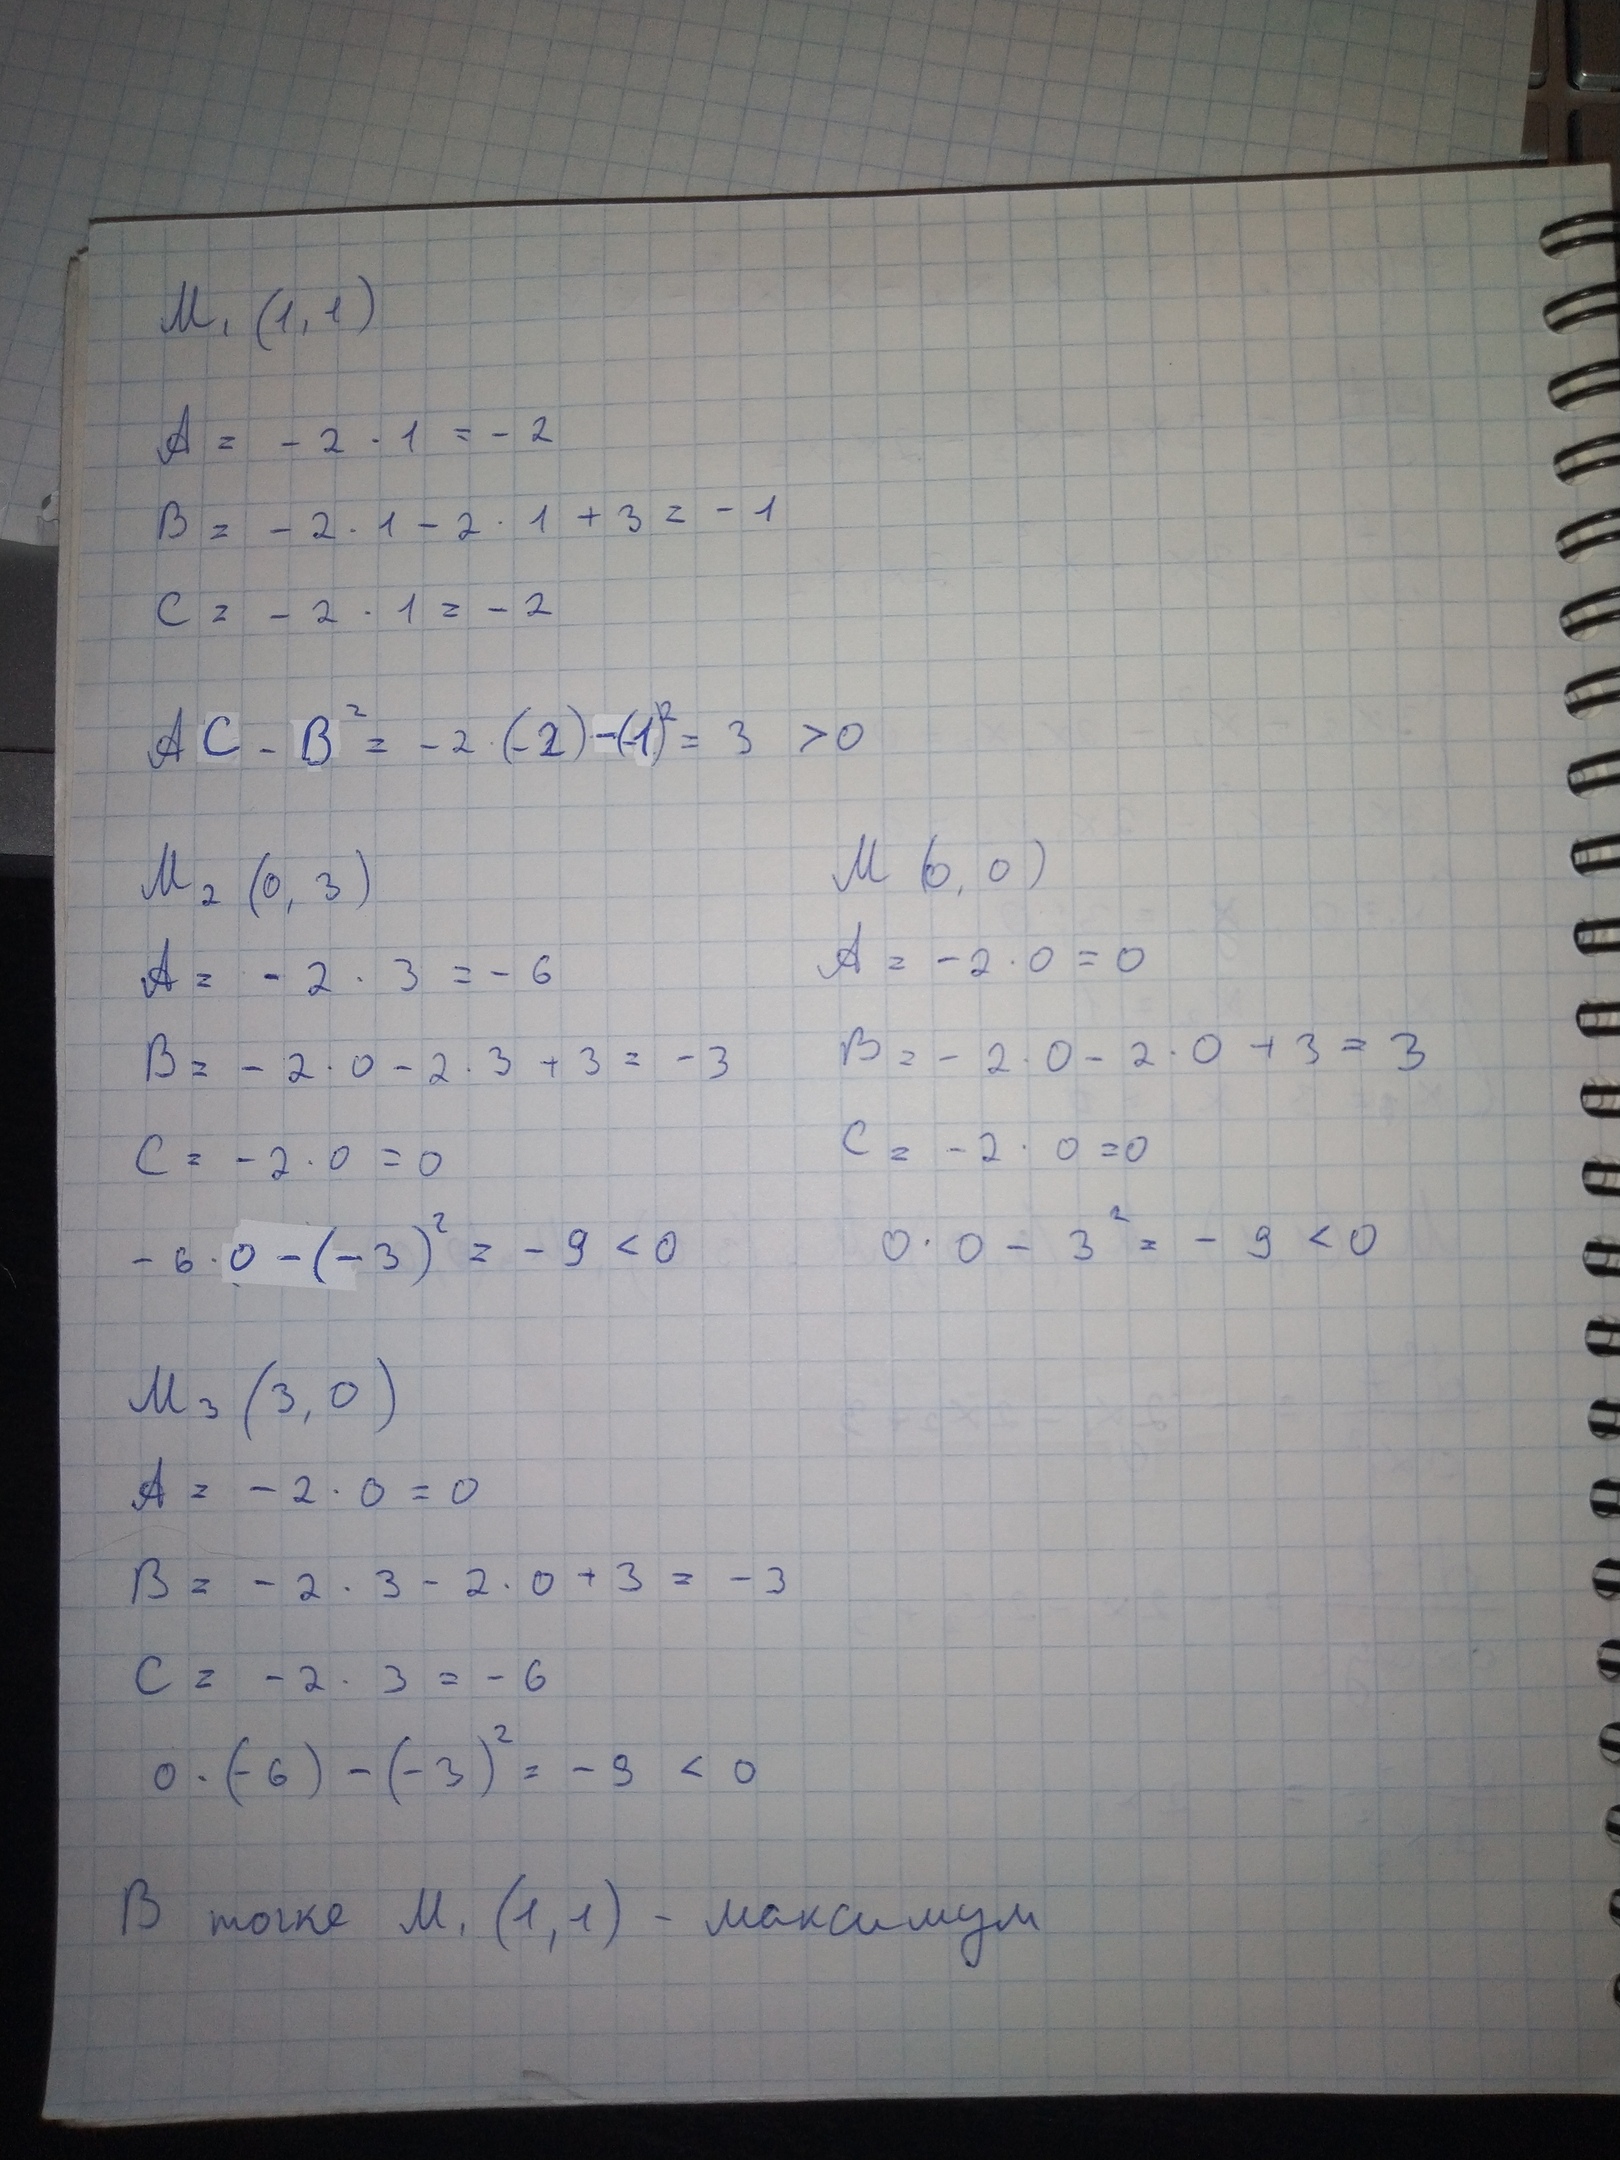 M₁ (1, 1)
A = - 2 · 1 = - 2
B = - 2 · 1 - 2 · 1 + 3 = - 1
C = - 2 · 1 = - 2
AC - B² = - 2 · (-2) - (-1)² = 3 > 0
M₂ (0, 3)
A = - 2 · 3 = - 6
B = - 2 · 0 - 2 · 3 + 3 = - 3
C = - 2 · 0 = 0
- 6 · 0 - (- 3)² = - 9 < 0
M (0, 0)
A = - 2 · 0 = 0
B = - 2 · 0 - 2 · 0 + 3 = 3
C = - 2 · 0 = 0
0 · 0 - 3² = - 9 < 0
M₃ (3, 0)
A = - 2 · 0 = 0
B = - 2 · 3 - 2 · 0 + 3 = - 3
C = - 2 · 3 = - 6
0 · (- 6) - (- 3)² = - 9 < 0
В точке M₁ (1, 1) - максимум